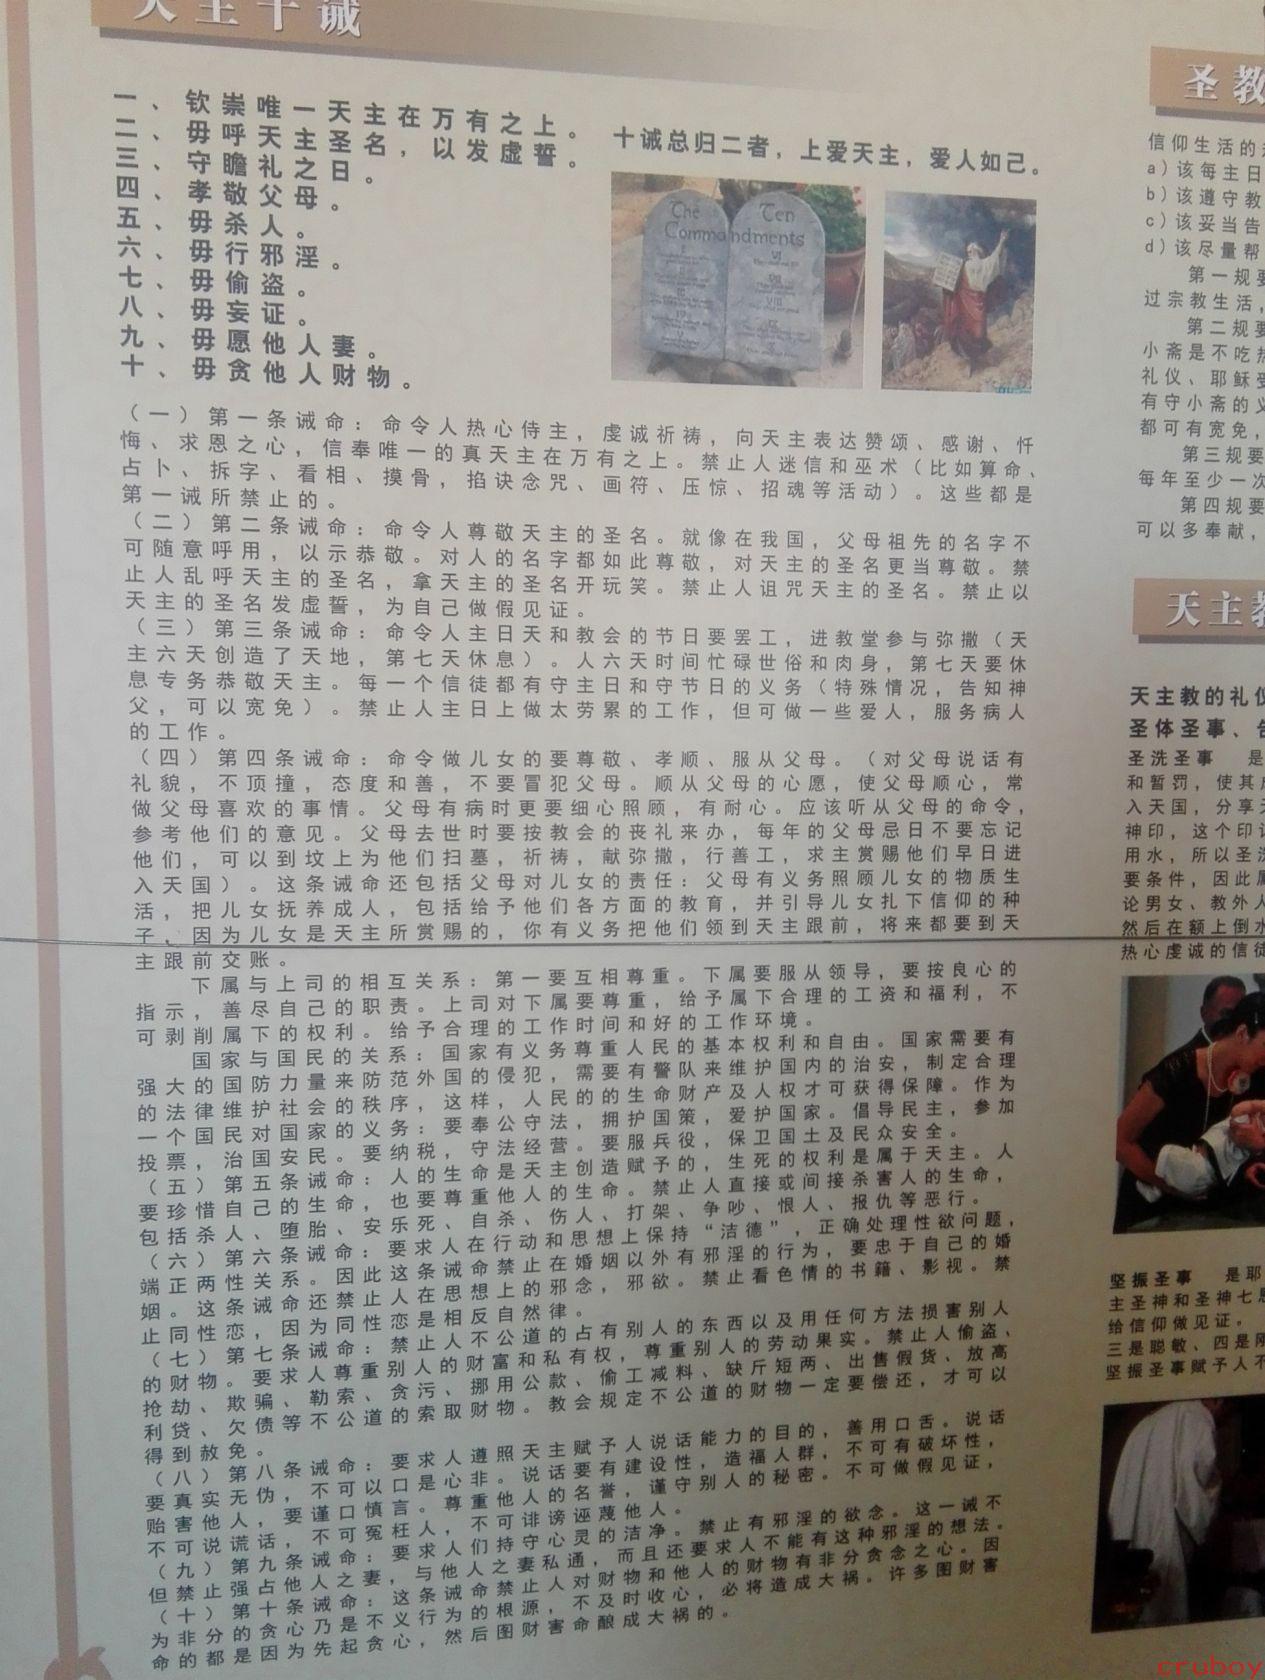 天主十诫
一、钦崇唯一天主在万有之上。
二、毋呼天主圣名，以发虚誓。
三、守瞻礼之日。
四、孝敬父母。
五、毋杀人。
六、毋行邪淫。
七、毋偷盗。
八、毋妄证。
九、毋愿他人妻。
十、毋贪他人财物。
十诫总归二者，上爱天主，爱人如己。
The Ten
Commandments
（一）第一条诫命：命令人热心侍主，虔诚祈祷，向天主表达赞颂、感谢、忏
悔、求恩之心，信奉唯一的真天主在万有之上。禁止人迷信和巫术（比如算命、
占卜、拆字、看相、摸骨，掐诀念咒、画符、压惊、招魂等活动）。这些都是
第一诫所禁止的。
（二）第二条诫命：命令人尊敬天主的圣名。就像在我国，父母祖先的名字不
可随意呼用，以示恭敬。对人的名字都如此尊敬，对天主的圣名更当尊敬。禁
止人乱呼天主的圣名，拿天主的圣名开玩笑。禁止人诅咒天主的圣名。禁止以
天主的圣名发虚誓，为自己做假见证。
（三）第三条诫命：命令人主日天和教会的节日要罢工，进教堂参与弥撒（天
主六天创造了天地，第七天休息）。人六天时间忙碌世俗和肉身，第七天要休
息专务恭敬天主。每一个信徒都有守主日和守节日的义务（特殊情况，告知神
父，可以宽免）。禁止人主日上做太劳累的工作，但可做一些爱人，服务病人
的工作。
（四）第四条诫命：命令做儿女的要尊敬、孝顺、服从父母。（对父母说话有
礼貌，不顶撞，态度和善，不要冒犯父母。顺从父母的心愿，使父母顺心，常
做父母喜欢的事情。父母有病时更要细心照顾，有耐心。应该听从父母的命令，
参考他们的意见。父母去世时要按教会的丧礼来办，每年的父母忌日不要忘记
他们，可以到坟上为他们扫墓，祈祷，献弥撒，行善工，求主赏赐他们早日进
入天国）。这条诫命还包括父母对儿女的责任：父母有义务照顾儿女的物质生
活，把儿女抚养成人，包括给予他们各方面的教育，并引导儿女扎下信仰的种
子，因为儿女是天主所赏赐的，你有义务把他们领到天主跟前，将来都要到天
主跟前交账。
下属与上司的相互关系：第一要互相尊重。下属要服从领导，要按良心的
指示，善尽自己的职责。上司对下属要尊重，给予属下合理的工资和福利，不
可剥削属下的权利。给予合理的工作时间和好的工作环境。
国家与国民的关系：国家有义务尊重人民的基本权利和自由。国家需要有
强大的国防力量来防范外国的侵犯，需要有警队来维护国内的治安，制定合理
的法律维护社会的秩序，这样，人民的的生命财产及人权才可获得保障。作为
一个国民对国家的义务：要奉公守法，拥护国策，爱护国家。倡导民主，参加
投票，治国安民。要纳税，守法经营。要服兵役，保卫国土及民众安全。
（五）第五条诫命：人的生命是天主创造赋予的，生死的权利是属于天主。人
要珍惜自己的生命，也要尊重他人的生命。禁止人直接或间接杀害人的生命，
包括杀人、堕胎、安乐死、自杀、伤人、打架、争吵、恨人、报仇等恶行。
（六）第六条诫命：要求人在行动和思想上保持“洁德”，正确处理性欲问题，
端正两性关系。因此这条诫命禁止在婚姻以外有邪淫的行为，要忠于自己的婚
姻。这条诫命还禁止人在思想上的邪念，邪欲。禁止看色情的书籍、影视。禁
止同性恋，因为同性恋是相反自然律。
（七）第七条诫命：禁止人不公道的占有别人的东西以及用任何方法损害别人
的财物。要求人尊重别人的财富和私有权，尊重别人的劳动果实。禁止人偷盗、
抢劫、欺骗、勒索、贪污、挪用公款、偷工减料、缺斤短两、出售假货、放高
利贷、欠债等不公道的索取财物。教会规定不公道的财物一定要偿还，才可以
得到赦免。
（八）第八条诫命：要求人遵照天主赋予人说话能力的目的，善用口舌。说话
要真实无伪，不可以口是心非。说话要有建设性，造福人群，不可有破坏性，
贻害他人，要谨口慎言。尊重他人的名誉，谨守别人的秘密。不可做假见证，
不可说谎话，不可冤枉人，不可诽谤诬蔑他人。
（九）第九条诫命：要求人们持守心灵的洁净。禁止有邪淫的欲念。这一诫不
但禁止强占他人之妻，与他人之妻私通，而且还要求人不能有这种邪淫的想法。
（十）第十条诫命：这条诫命禁止人对财物和他人的财物有非分贪念之心。因
为非分的贪心乃是不义行为的根源，不及时收心，必将造成大祸。许多图财害
命的都是因为先起贪心，然后图财害命酿成大祸的。
圣教
信仰生活的
a）该每主日
b）该遵守教
c）该妥当告
d）该尽量帮
第一规要
过宗教生活，
第二规要
小斋是不吃热
礼仪、耶稣受
有守小斋的义
都可有宽免，
第三规要
每年至少一次
第四规要
可以多奉献，
天主教
天主教的礼仪
圣体圣事、告
圣洗圣事 是
和暂罚，使其成
入天国，分享天
神印，这个印记
用水，所以圣洗
要条件，因此属
论男女、教外人
然后在额上倒水
热心虔诚的信徒
坚振圣事 是耶
主圣神和圣神七恩
给信仰做见证。
三是聪敏、四是刚
坚振圣事赋予人不
cruboy